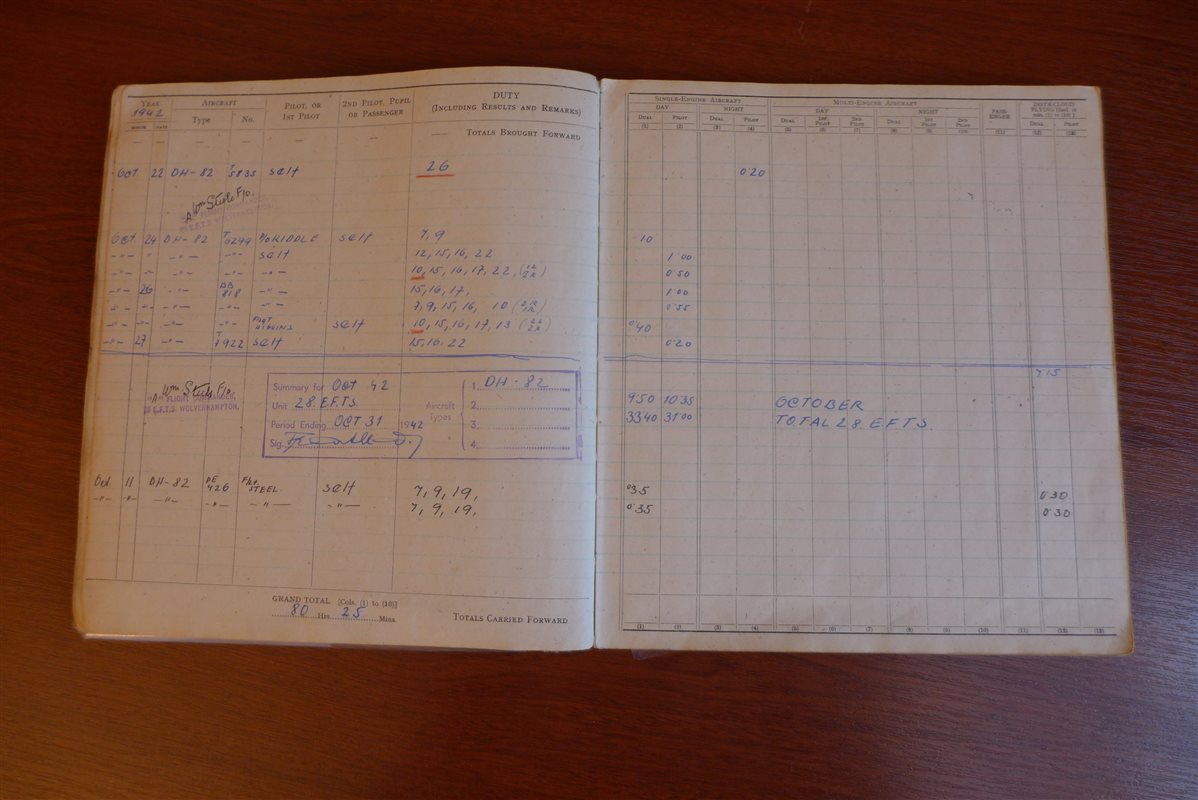 YEAR AIRCRAFT PILOT, OR 1ST PILOT 2ND PILOT, PUPIL OR PASSENGER DUTY (INCLUDING RESULTS AND REMARKS)
1942
MONTH DATE Type No.
— — — — — — — TOTALS BROUGHT FORWARD
Oct 22 DH-82 T5835 self 26
Wm Steele F/O.
"A" FLIGHT COMMANDER,
28 E.F.T.S. WOLVERHAMPTON.
Oct. 24 DH-82 P/O RIDDLE self 7, 9
-"- " -"- -"- self 12, 15, 16, 22
-"- " -"- -"- -"- 10, 15, 16, 17, 22,
-"- 26 -"- -"- 15, 16, 17,
-"- -"- -"- -"- -"- 7, 9, 15, 16, 10
-"- -"- -"- -"- self 10, 15, 16, 17, 13
-"- 27 -"- T7922 self 15, 16. 22
Wm Steele F/O.
"A" FLIGHT COMMANDER,
28 E.F.T.S. WOLVERHAMPTON.
Summary for Oct 42
Unit 28. E.F.T.S.
Period Ending OCT 31 1942
Sig.
Aircraft Types
1. DH-82
2.
3.
4.
Oct. 11 DH-82 DE 426 F/Lt. STEEL self 7, 9, 19,
-"- -"- -"- -"- -"- -"- 7, 9, 19,
GRAND TOTAL [Cols. (1) to (10)]
80 Hrs. 25 Mins.
TOTALS CARRIED FORWARD
SINGLE-ENGINE AIRCRAFT MULTI-ENGINE AIRCRAFT PASSENGER
DAY NIGHT DAY NIGHT
DUAL PILOT DUAL PILOT DUAL 1ST PILOT 2ND PILOT DUAL 1ST PILOT 2ND PILOT DUAL PILOT
(1) (2) (3) (4) (5) (6) (7) (8) (9) (10) (11) (12) (13)
0.20
.10
1.00
0.50
1.00
0.55
0.40
0.20
7.15
9.50 10.35 OCTOBER
33.40 31.00 TOTAL 28. E.F.T.S.
0.35 0.30
0.35 0.30
(1) (2) (3) (4) (5) (6) (7) (8) (9) (10) (11) (12) (13)